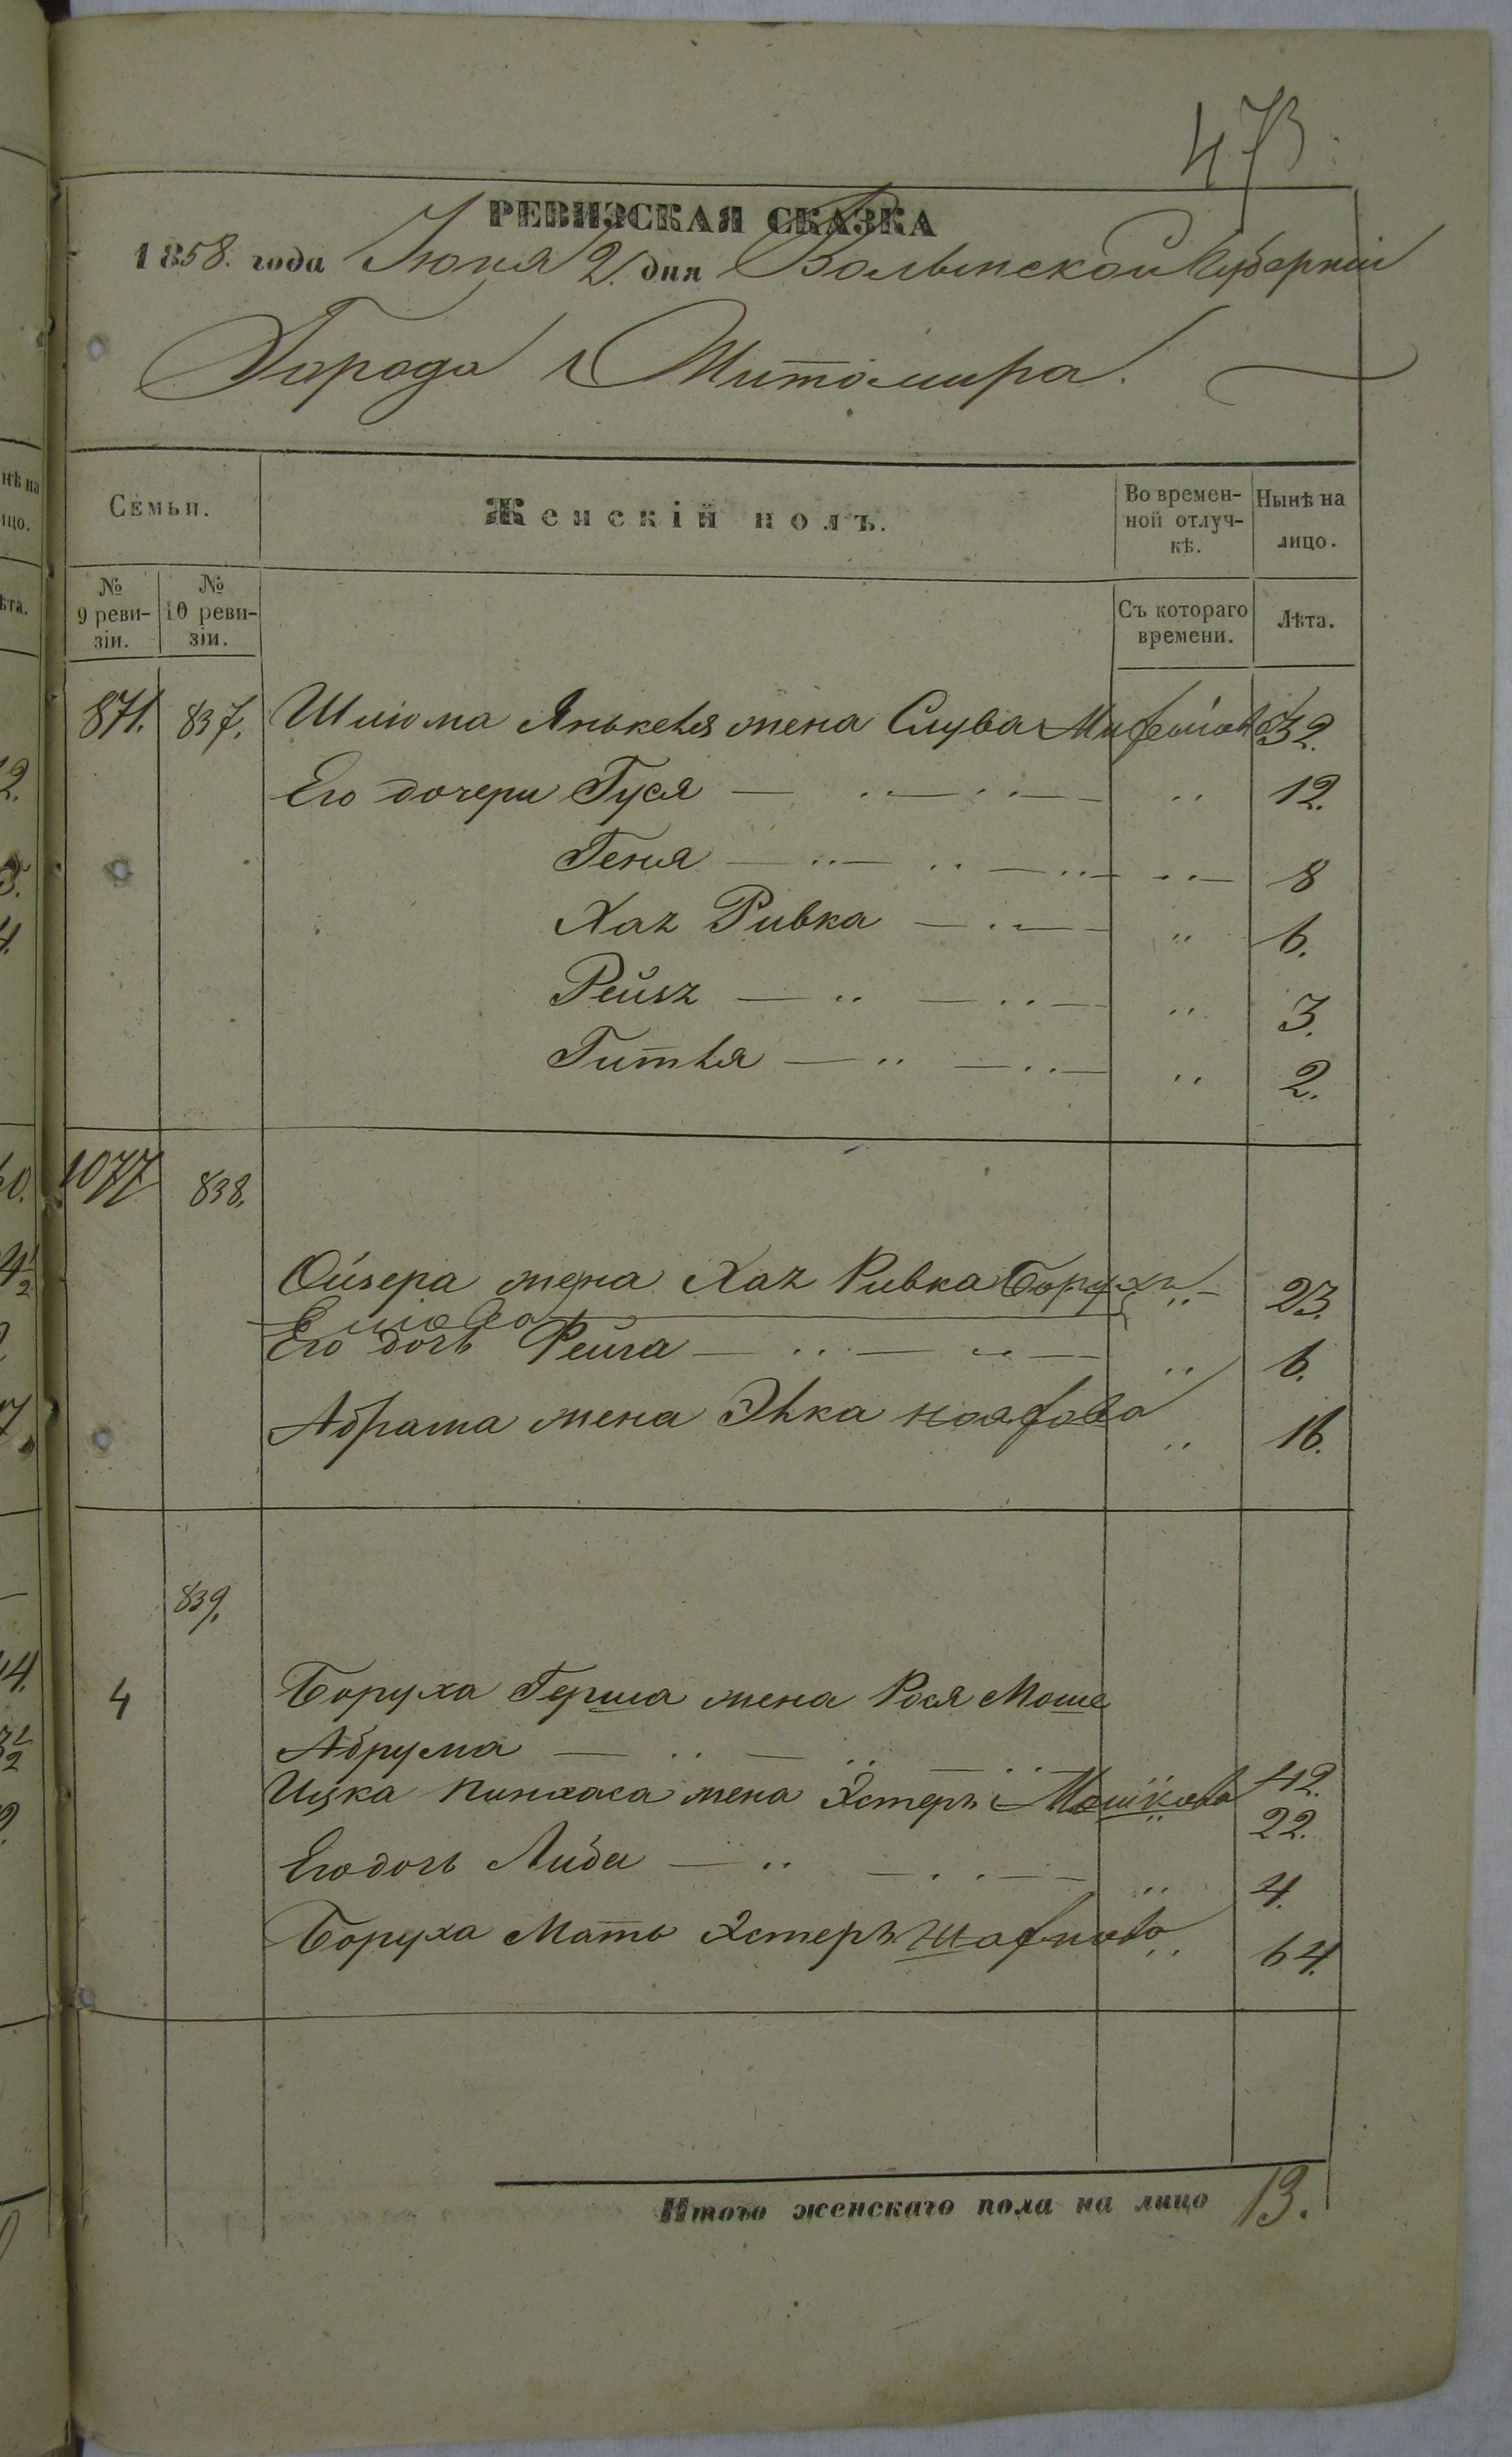 473.
РЕВИЗСКАЯ СКАЗКА
1858. года Июня 2. дня Волынской Губерніи
Города Житомира.
Семьи.
Женскій полъ.
Во времен-
ной отлуч-
кѣ.
Нынѣ на
лицо.
№
9 реви-
зіи.
№
10 реви-
зіи.
Съ котораго
времени.
Лѣта.
871. 837. Шліома Янькеля жена Слува 32.
Его дочери Гуся — ..— ..— .. 12.
Геня — ..— .. — ..— ..— 8
Хая Ривка — ..— .. 6.
Рейзя — .. — ..— .. 3.
Гитля — .. — ..— .. 2.
1077 838.
Ойзера жена Хая Ривка Борух ..— 23.
Его дочь Рейза — ..— ..— .. 6.
Абрама жена Элка .. 16.
839.
4 Боруха Герша жена Рося Моше
Абрума — .. — .. — .. 42.
Ицка Пинхаса жена Эстеръ Мошкова .. 22.
Его дочь Либа — .. — ..— .. 4.
Боруха Мать Эстеръ .. 64.
Итого женскаго пола на лицо 13.